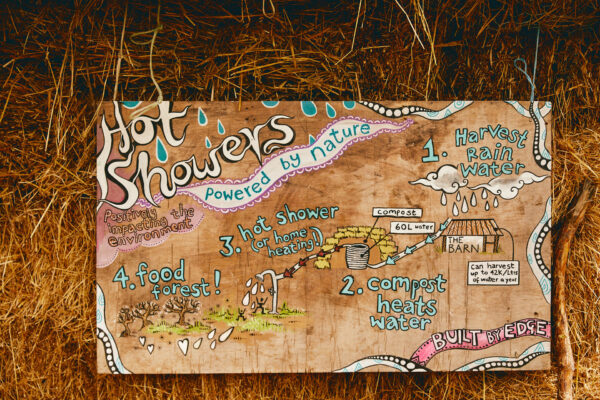 Hot
Showers
powered by nature
Positively
impacting the
environment
1. Harvest
Rain
Water
THE
BARN
can harvest
up to 42K/Ltrs
of water a year
compost
60L water
2. compost
heats
water
3. hot shower
(or home
heating!)
4. food
forest!
BUILT BY EDGE